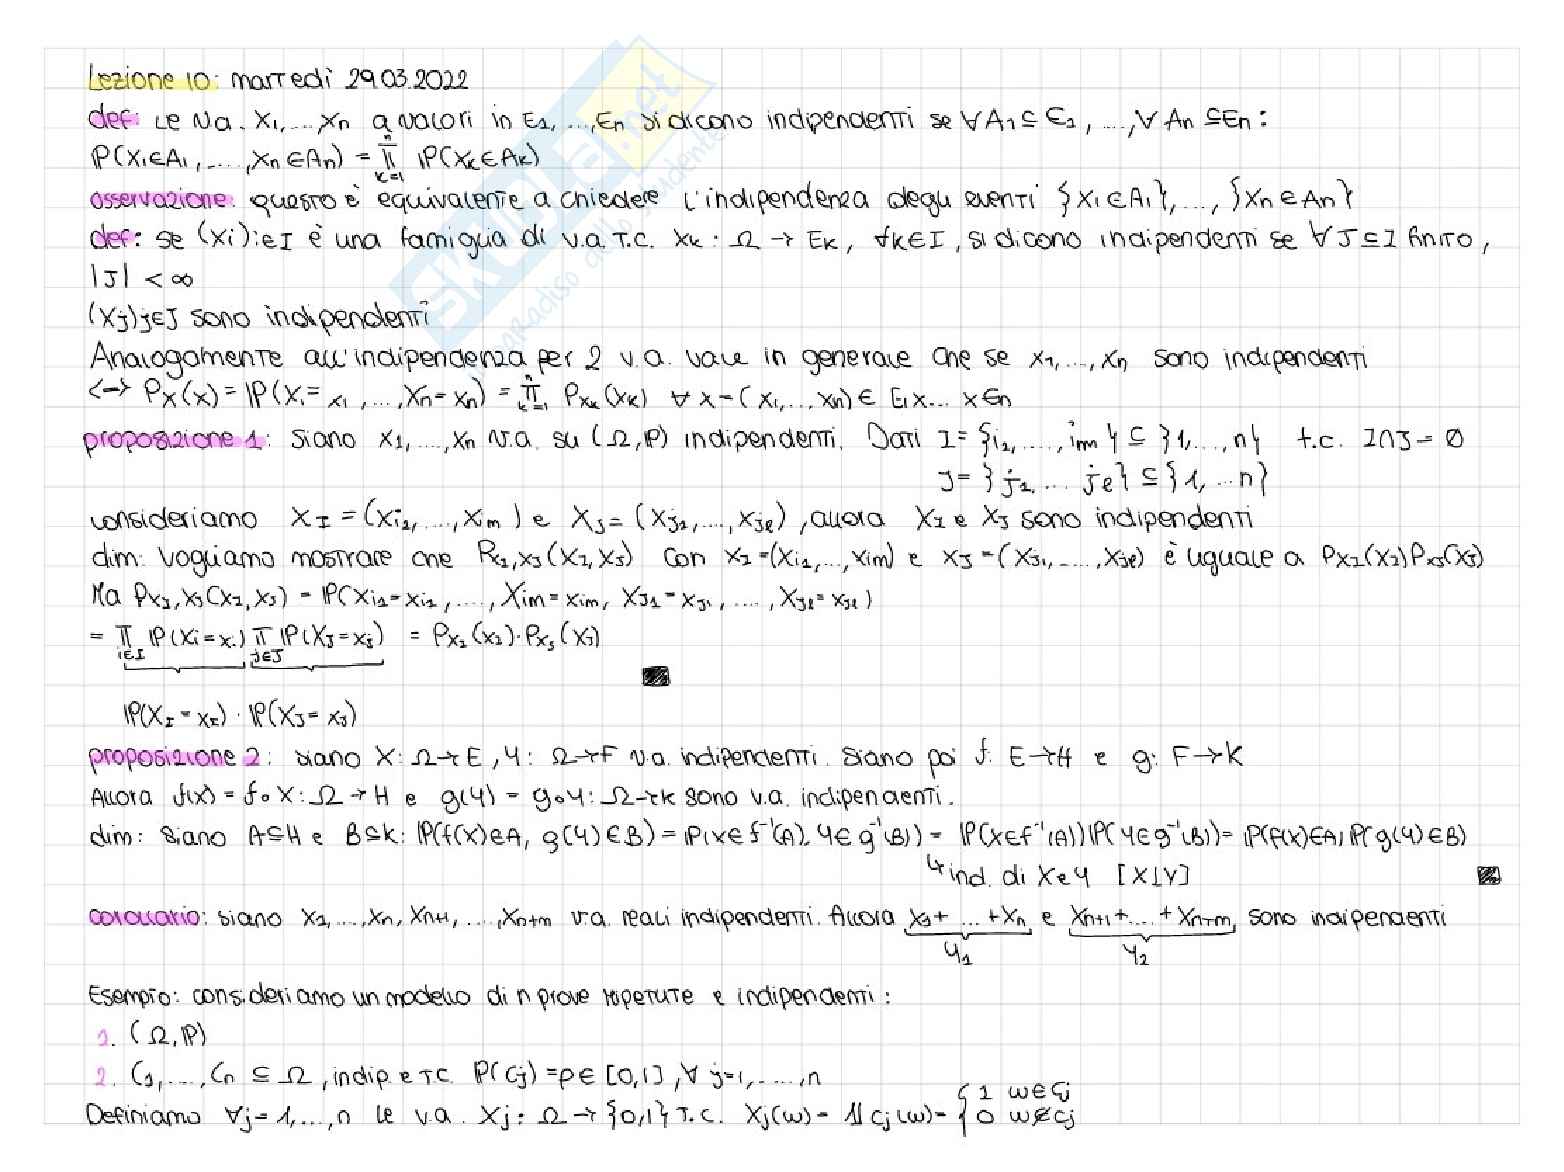 Lezione 10: martedì 29.03.2022
def: Le v.a. X₁,...,Xn a valori in E₁,...,En si dicono indipendenti se ∀A₁⊆E₁, ...,∀ An ⊆En:
ℙ(X₁∈A₁, ...., Xn∈An) = ∏ₖ₌₁ⁿ ℙ(Xₖ∈Aₖ)
osservazione: questo è equivalente a chiedere l'indipendenza degli eventi {X₁∈A₁},..., {Xn∈An}
def: se (Xi)i∈I è una famiglia di v.a. T.c. Xₖ: Ω → Eₖ, ∀k∈I, si dicono indipendenti se ∀J⊆I finito,
|J| < ∞
(Xj)j∈J sono indipendenti
Analogamente all'indipendenza per 2 v.a. vale in generale che se X₁,...,Xn sono indipendenti
<-> Pₓ(x) = ℙ(X₁=x₁,...,Xn=xn) = ∏ₖ₌₁ⁿ Pxₖ(xₖ) ∀ x=(x₁,...,xn)∈ E₁x... xEn
proposizione 1: Siano X₁,...,Xn v.a. su (Ω,ℙ) indipendenti. Dati I={i₁,...., im} ⊆ {1,...,n} t.c. I∩J=∅
J={j₁,... jℓ} ⊆ {1,...n}
consideriamo X_I=(Xi₁,...,Xim) e X_J=(Xj₁,...,Xjℓ), allora X_I e X_J sono indipendenti
dim: Vogliamo mostrare che P_{X_I,X_J}(x_I,x_J) con x_I=(xi₁,...,xim) e x_J=(xj₁,....,xjℓ) è uguale a P_{X_I}(x_I)P_{X_J}(x_J)
Ma P_{X_I,X_J}(x_I,x_J) = ℙ(Xi₁=xi₁, ...., Xim=xim, Xj₁=xj₁, ...., Xjℓ=xjℓ)
= ∏_{i∈I} ℙ(Xi=xi) ∏_{j∈J} ℙ(Xj=xj) = P_{X_I}(x_I)·P_{X_J}(x_J)
ℙ(X_I=x_I) · ℙ(X_J=x_J)
proposizione 2: siano X: Ω→E, Y: Ω→F v.a. indipendenti. Siano poi f: E→H e g: F→K
Allora f(X) = f∘X: Ω → H e g(Y) = g∘Y: Ω→K sono v.a. indipendenti.
dim: Siano A⊆H e B⊆K: ℙ(f(X)∈A, g(Y)∈B) = ℙ(X∈f⁻¹(A), Y∈g⁻¹(B)) = ℙ(X∈f⁻¹(A))ℙ(Y∈g⁻¹(B)) = ℙ(f(X)∈A)ℙ(g(Y)∈B)
↳ ind. di X e Y [X⊥Y]
corollario: siano X₁,...,Xn, Xn+1, ....,Xn+m v.a. reali indipendenti. Allora X₁+ ... +Xn e Xn+1+....+Xn+m sono indipendenti
Y₁ Y₂
Esempio: consideriamo un modello di n prove ripetute e indipendenti:
1. (Ω,ℙ)
2. C₁,...., Cn ⊆ Ω, indip. e T.c. ℙ(Cj)=p∈[0,1], ∀ j=1,....,n
Definiamo ∀j=1,...,n le v.a. Xj: Ω → {0,1} T.c. Xj(ω) = 𝟙Cj(ω) = { 1 ω∈Cj
0 ω∉Cj
SKUOLA.net
paradiso dello studente